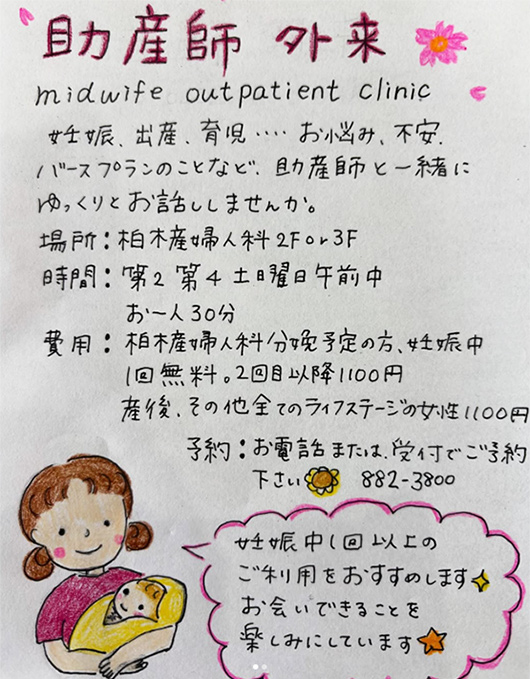 助産師 外来
midwife outpatient clinic
妊娠、出産、育児‥‥ お悩み、不安、
バースプランのことなど、助産師と一緒に
ゆっくりとお話ししませんか。
場所：柏木産婦人科 2F or 3F
時間：第2 第4 土曜日午前中
お一人30分
費用：柏木産婦人科分娩予定の方、妊娠中
1回無料。2回目以降1100円
産後、その他全てのライフステージの女性1100円
予約：お電話または、受付でご予約
下さい 882-3800
妊娠中1回以上の
ご利用をおすすめします
お会いできることを
楽しみにしています